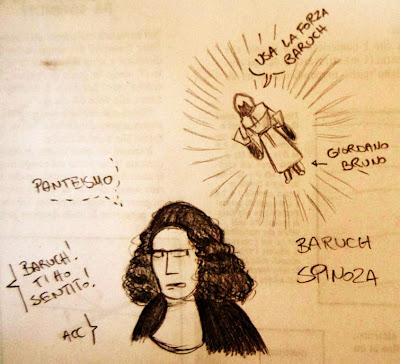 USA LA FORZA
BARUCH
GIORDANO
BRUNO
PANTEISMO
BARUCH!
TI HO
SENTITO!
ACC
BARUCH
SPINOZA